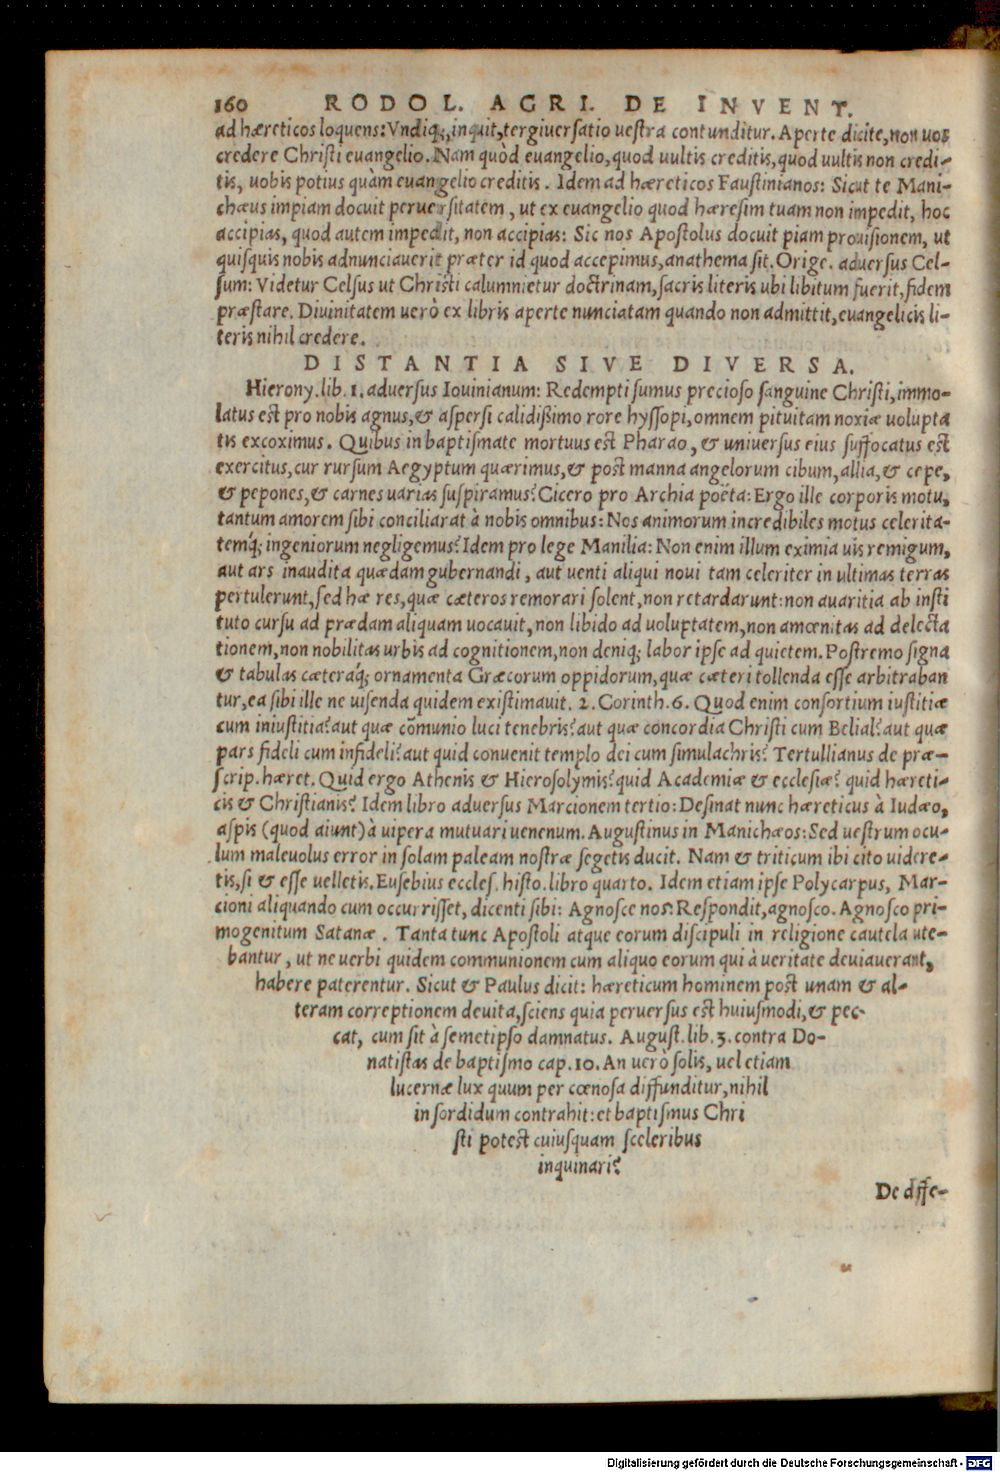 160 RODOL. AGRI. DE INVENT.
ad hæreticos loquens: Vndiq;, inquit, tergiuersatio uestra contunditur. Aperte dicite, non uos
credere Christi euangelio. Nam quòd euangelio, quod uultis creditis, quod uultis non credi-
tis, uobis potius quàm euangelio creditis. Idem ad hæreticos Faustinianos: Sicut te Mani-
chæus impiam docuit peruersitatem, ut ex euangelio quod hæresim tuam non impedit, hoc
accipias, quod autem impedit, non accipias: Sic nos Apostolus docuit piam prouisionem, ut
quisquis nobis adnunciauerit præter id quod accepimus, anathema sit. Orige. aduersus Cel-
sum: Videtur Celsus ut Christi calumnietur doctrinam, sacris literis ubi libitum fuerit, fidem
præstare. Diuinitatem uerò ex libris aperte nunciatam quando non admittit, euangelicis li-
teris nihil credere.
DISTANTIA SIVE DIVERSA.
Hierony. lib. 1. aduersus Iouinianum: Redempti sumus precioso sanguine Christi, immo-
latus est pro nobis agnus, & aspersi calidißimo rore hyssopi, omnem pituitam noxiæ uolupta
tis excoximus. Quibus in baptismate mortuus est Pharao, & uniuersus eius suffocatus est
exercitus, cur rursum Aegyptum quærimus, & post manna angelorum cibum, allia, & cepe,
& pepones, & carnes uarias suspiramus? Cicero pro Archia poëta: Ergo ille corporis motu,
tantum amorem sibi conciliarat à nobis omnibus: Nos animorum incredibiles motus celerita-
temq́; ingeniorum negligemus? Idem pro lege Manilia: Non enim illum eximia uis remigum,
aut ars inaudita quædam gubernandi, aut uenti aliqui noui tam celeriter in ultimas terras
pertulerunt, sed hæ res, quæ cæteros remorari solent, non retardarunt: non auaritia ab insti
tuto cursu ad prædam aliquam uocauit, non libido ad uoluptatem, non amœnitas ad delecta
tionem, non nobilitas urbis ad cognitionem, non deniq; labor ipse ad quietem. Postremo signa
& tabulas cæteraq́; ornamenta Græcorum oppidorum, quæ cæteri tollenda esse arbitraban
tur, ea sibi ille ne uisenda quidem existimauit. 2. Corinth. 6. Quod enim consortium iustitiæ
cum iniustitia? aut quæ cõmunio luci tenebris? aut quæ concordia Christi cum Belial? aut quæ
pars fideli cum infideli? aut quid conuenit templo dei cum simulachris? Tertullianus de præ-
scrip. hæret. Quid ergo Athenis & Hierosolymis? quid Academiæ & ecclesiæ? quid hæreti-
cis & Christianis? Idem libro aduersus Marcionem tertio: Desinat nunc hæreticus à Iudæo,
aspis (quod aiunt) à uipera mutuari uenenum. Augustinus in Manichæos: Sed uestrum ocu-
lum maleuolus error in solam paleam nostræ segetis ducit. Nam & triticum ibi cito uidere-
tis, si & esse uelletis. Eusebius eccles. histo. libro quarto. Idem etiam ipse Polycarpus, Mar-
cioni aliquando cum occurrisset, dicenti sibi: Agnosce nos: Respondit, agnosco. Agnosco pri-
mogenitum Satanæ. Tanta tunc Apostoli atque eorum discipuli in religione cautela ute-
bantur, ut ne uerbi quidem communionem cum aliquo eorum qui à ueritate deuiauerant,
habere paterentur. Sicut & Paulus dicit: hæreticum hominem post unam & al-
teram correptionem deuita, sciens quia peruersus est huiusmodi, & pec-
cat, cum sit à semetipso damnatus. August. lib. 3. contra Do-
natistas de baptismo cap. 10. An uerò solis, uel etiam
lucernæ lux quum per cœnosa diffunditur, nihil
in sordidum contrahit: et baptismus Chri
sti potest cuiusquam sceleribus
inquinari?
De diffe-
Digitalisierung gefördert durch die Deutsche Forschungsgemeinschaft - DFG